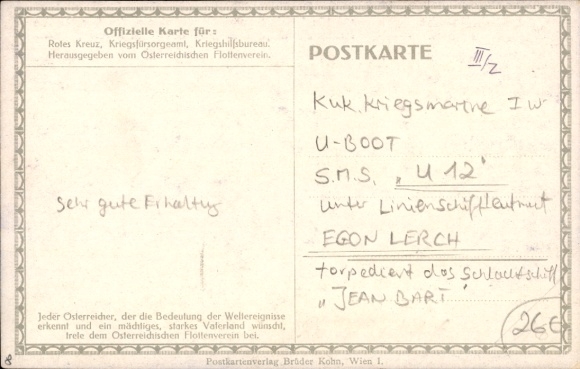 Offizielle Karte für:
Rotes Kreuz, Kriegsfürsorgeamt, Kriegshilfsbureau.
Herausgegeben vom Österreichischen Flottenverein.
POSTKARTE
III/2
KuK. Kriegsmarine I W
U-BOOT
S.M.S. „U 12"
unter Linienschiffleutnant
EGON LERCH
torpediert das Schlachtschiff
„JEAN BART"
26€
Sehr gute Erhaltung
Jeder Österreicher, der die Bedeutung der Weltereignisse
erkennt und ein mächtiges, starkes Vaterland wünscht,
trete dem Österreichischen Flottenverein bei.
8
Postkartenverlag Brüder Kohn, Wien I.